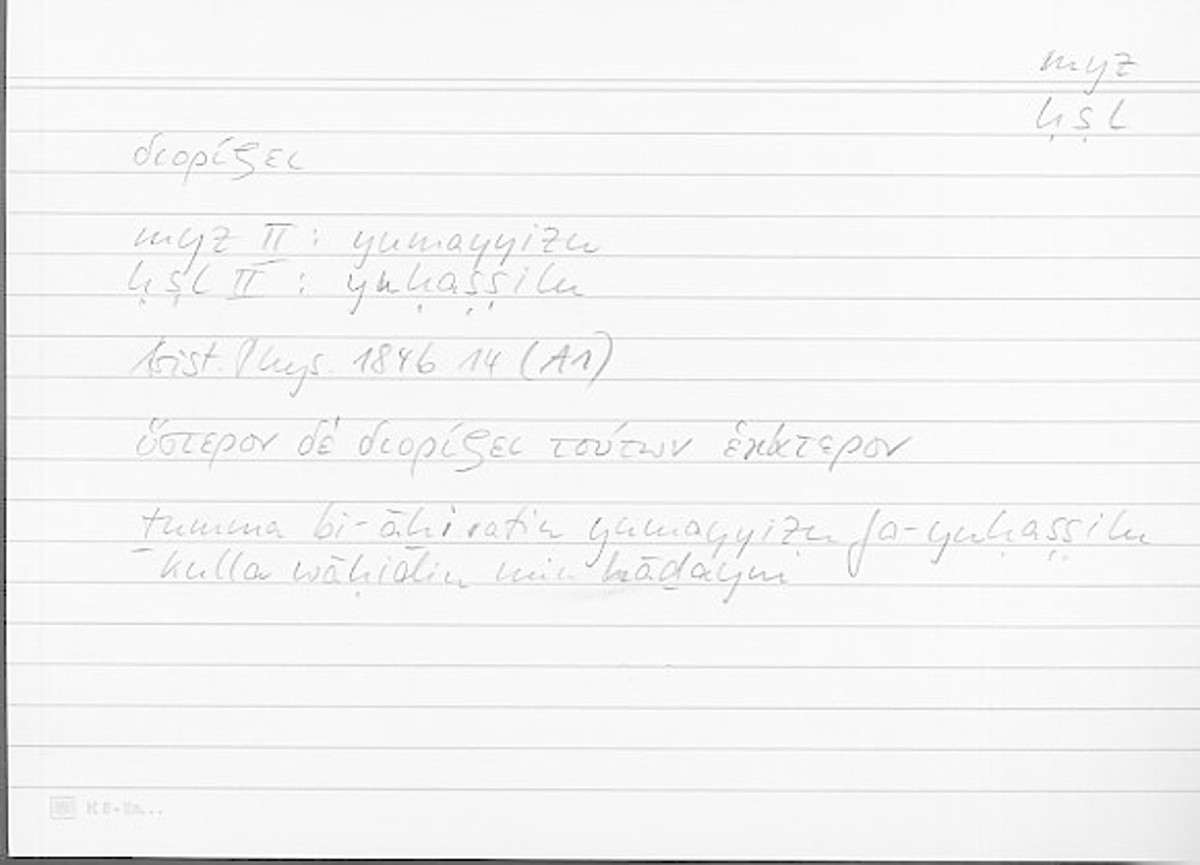 myz
ḥṣl
διορίζει
myz II : yumayyizu
ḥṣl II : yuḥaṣṣilu
Arist. Phys. 184b 14 (A1)
ὕστερον δὲ διορίζει τούτων ἑκάτερον
ṯumma bi-āḫiratin yumayyizu fa-yuḥaṣṣilu
kulla wāḥidin min hāḏayni